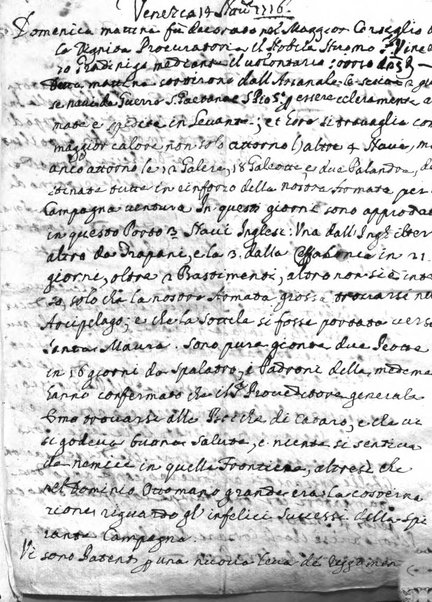 Venezia 14 Nov. 1716
Domenica mattina fù decorato nel Maggior Conseglio
la Dignità Procuratoria il Nobile Huomo
Gradeniga mediante il volontario
mattina sortirono dall'Arsenale
se navi da Guerra S. Gaetano, e essere celeramente
mate e spedite in Levante; et hora si travaglia con
maggior calore non solo attorno l'altre 4 Navi, ma
anco attorno le 12 Galere, 18 Galeotte, e due Palandre, de
stinate tutte in rinforzo della nostra Armata per
Campagna ventura. In questi giorni sono approdate
in questo Porto 3 Navi Inglesi: Una dall'
altra da Trapani, e la 3. dalla Ceffalonia in 21
giorni, oltre 2 Bastimenti, altro non si è inte
so, solo che la nostra Armada grossa trovarsi
Arcipelago; e che la Sottile si fosse portata verso
Santa Maura. Sono pure gionte due
in 16 giorni da Spalatro, e Padroni della medema
hanno confermato che il Proveditore generale
Emo trovarsi alle Bocche di Cataro, e che ivi
si godeva buona salute, e niente si sentiva
da nemici in quella Frontiera, altresì che
nel Dominio Ottomano grande era la costerna
tione riguardo gl'infelici successi della spi
rante Campagna.
Vi sono Patenti una nuova Leva di